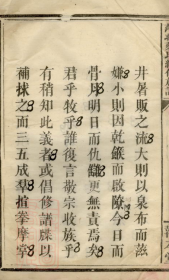 井暑販之流大則以泉布而蒸
嫌小則因乾餱而啟隙今日而
骨月明日而仇讎更無責焉矣
君乎牧乎誰復言敬宗收族乎
有稍知此義者或倡修譜牒以
補捄之而三五成羣揎拳摩掌